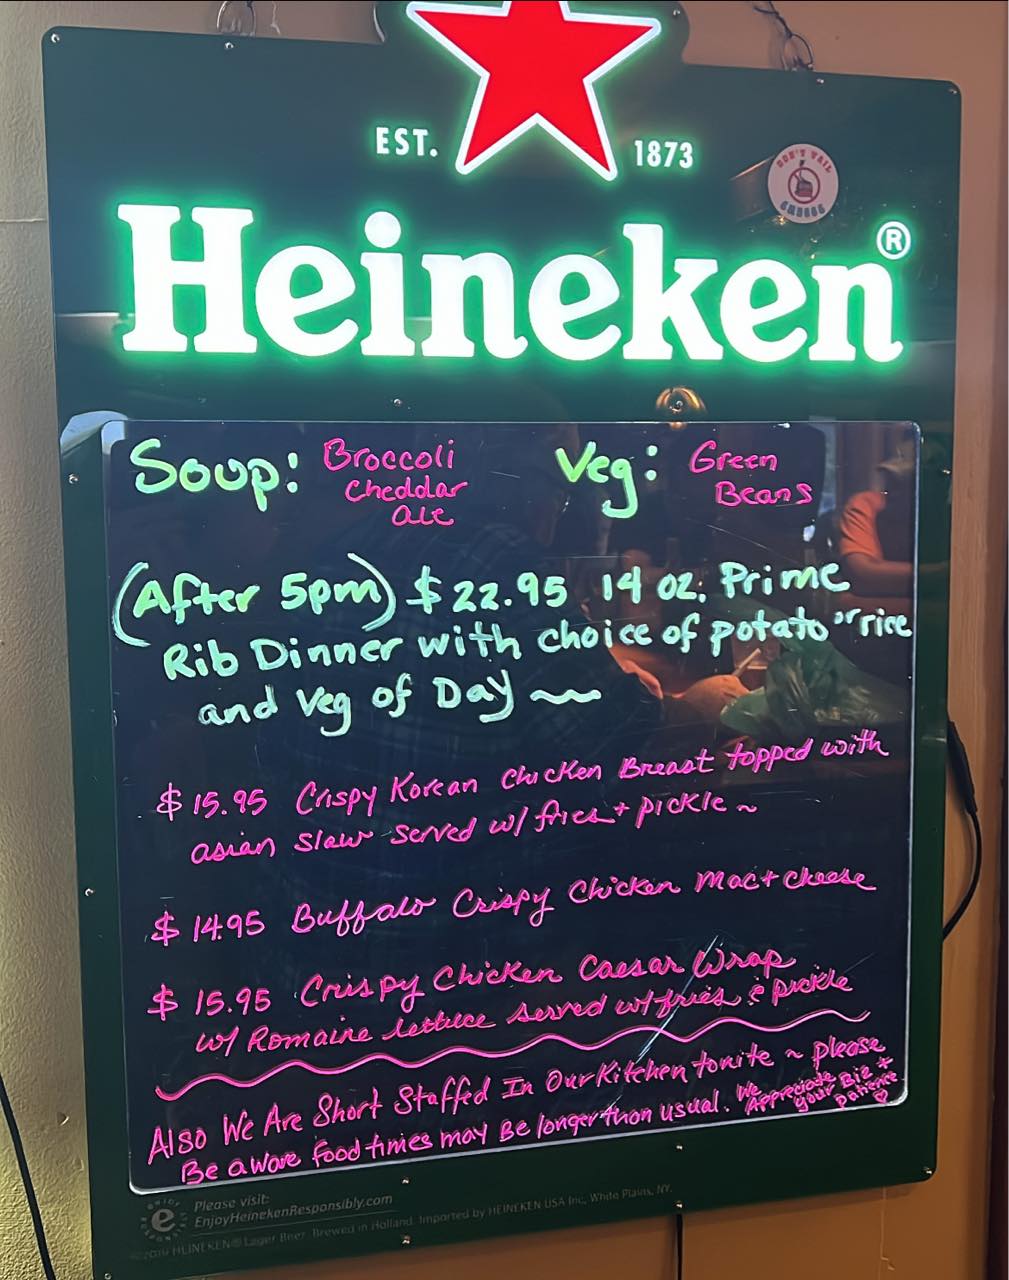 EST. 1873
DON'T TAIL
SMOOGE
Heineken®
Soup: Broccoli
Cheddar
Ale
Veg: Green
Beans
(After 5pm) $22.95 14 oz. Prime
Rib Dinner with choice of potato or rice
and Veg of Day ~
$15.95 Crispy Korean Chicken Breast topped with
asian slaw served w/ fries + pickle ~
$14.95 Buffalo Crispy Chicken Mac + cheese
$15.95 Crispy Chicken Caesar Wrap
w/ Romaine lettuce served w/ fries & pickle
Also We Are Short Staffed In Our Kitchen tonite ~ please
Be aware food times may Be longer than usual. We
Appreciate
your Biz +
patience ♡
Please visit:
EnjoyHeinekenResponsibly.com
©2019 HEINEKEN® Lager Beer. Brewed in Holland. Imported by HEINEKEN USA Inc., White Plains, NY.